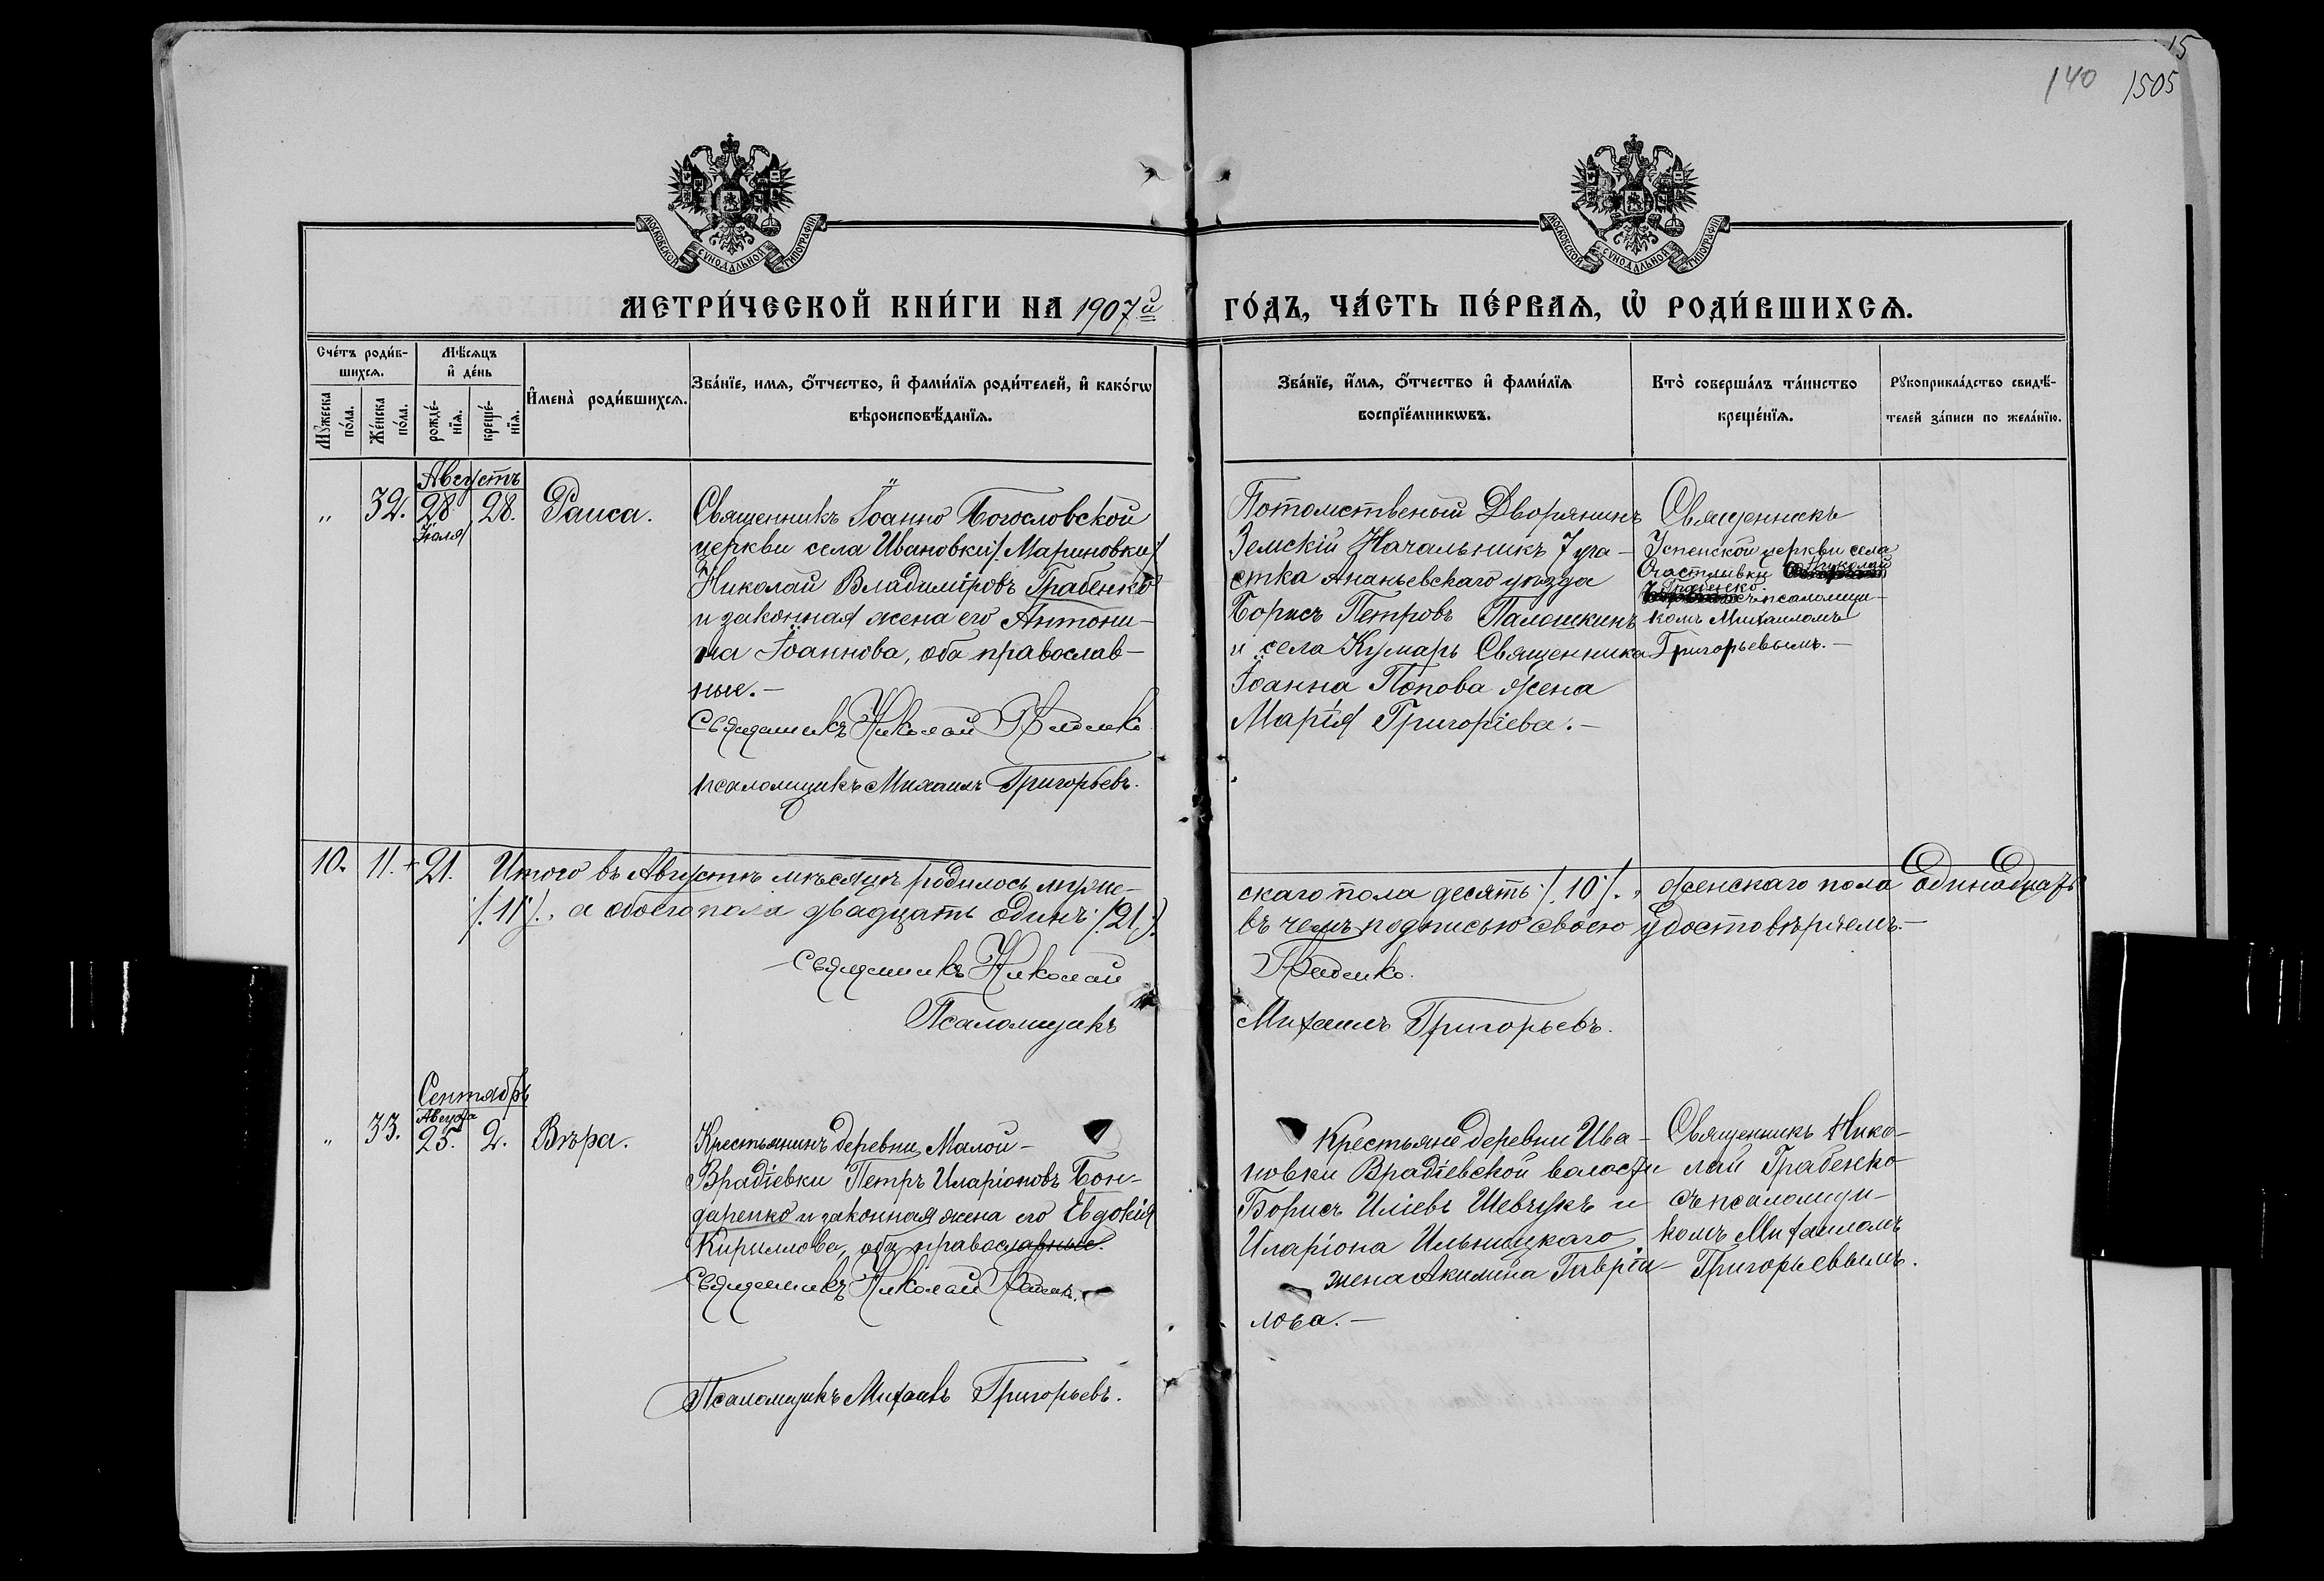 15
140 1505
МОСКОВСКОЙ СѴНОДАЛЬНОЙ ТИПОГРАФІИ
МОСКОВСКОЙ СѴНОДАЛЬНОЙ ТИПОГРАФІИ
МЕТРИ́ЧЕСКОЙ КНИ́ГИ НА 1907й
ГО́ДЪ, ЧА́СТЬ ПЕ́РВАѦ, Ѽ РОДИ́ВШИХСѦ.
Сче́тъ роди́в-
шихсѧ.
Мꙋ́жеска по́ла.
Же́нска по́ла.
Мѣ́сѧцъ
и҆ де́нь
рожде́-нїѧ.
креще́-нїѧ.
И҆мена̀ роди́вшихсѧ.
Зва́нїе, имѧ, ѻ҆́тчество, и҆ фами́лїѧ роди́телей, и҆ како́гѡ
вѣроисповѣ́данїѧ.
Зва́нїе, и҆́мѧ, ѻ҆́тчество и҆ фами́лїѧ
воспрїе́мникѡвъ.
Кто̀ соверша́лъ та́инство
креще́нїѧ.
Рꙋкоприкла́дство свидѣ́-
телей за́писи по жела́нїю.
Августъ
" 32. 28 28. Раиса.
Іюля
Священникъ Іоанно Богословской
церкви села Ивановки /Мариновки/
Николай Владиміровъ Грабенко
и законная жена его Антони-
на Іоаннова, оба православ-
ные.-
Священникъ Николай Грабенко
псаломщикъ Михаилъ Григорьевъ.
Потомственый Дворянинъ
Земскій Начальникъ 7 уча-
стка Ананьевскаго уѣзда
Борисъ Петровъ Палошкинъ
и села Кумарь Священника
Іоанна Попова жена
Марія Григоріева.-
Священникъ
Успенской церкви села
Счастливки Николай
Грабенко съ псаломщи-
комъ Михаиломъ
Григорьевымъ.-
10. 11. + 21. Итого въ Августѣ мѣсяцѣ родилось муже-
скаго пола десять /.10/., женскаго пола Одинадцать
/.11/., а обоего пола двадцать одинъ /.21/.
въ чемъ подписью своею удостовѣряемъ.-
Священникъ Николай
Грабенко.
Псаломщикъ
Михаилъ Григорьевъ.
Сентябрь
Августа
" 33. 25. 2. Вѣра.
Крестьянинъ деревни Малой-
Врадіевки Петръ Иларіоновъ Бон-
даренко и законная жена его Евдокія
Кириллова, оба православные.
Священникъ Николай Грабенко.
Псаломщикъ Михаилъ Григорьевъ.
Крестьяне деревни Ива-
новки Врадіевской волости
Борисъ Иліевъ Шевчукъ и
Иларіона Ильницкаго
жена Акилина Гавріи-
лова.-
Священникъ Нико-
лай Грабенко
съ псаломщи-
комъ Михаиломъ
Григорьевымъ.